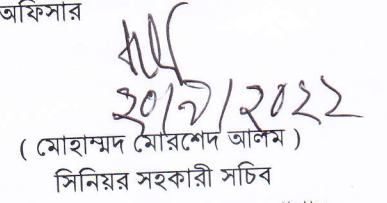 অফিসার
২০/৩/২০২২
( মোহাম্মদ মোরশেদ আলম )
সিনিয়র সহকারী সচিব